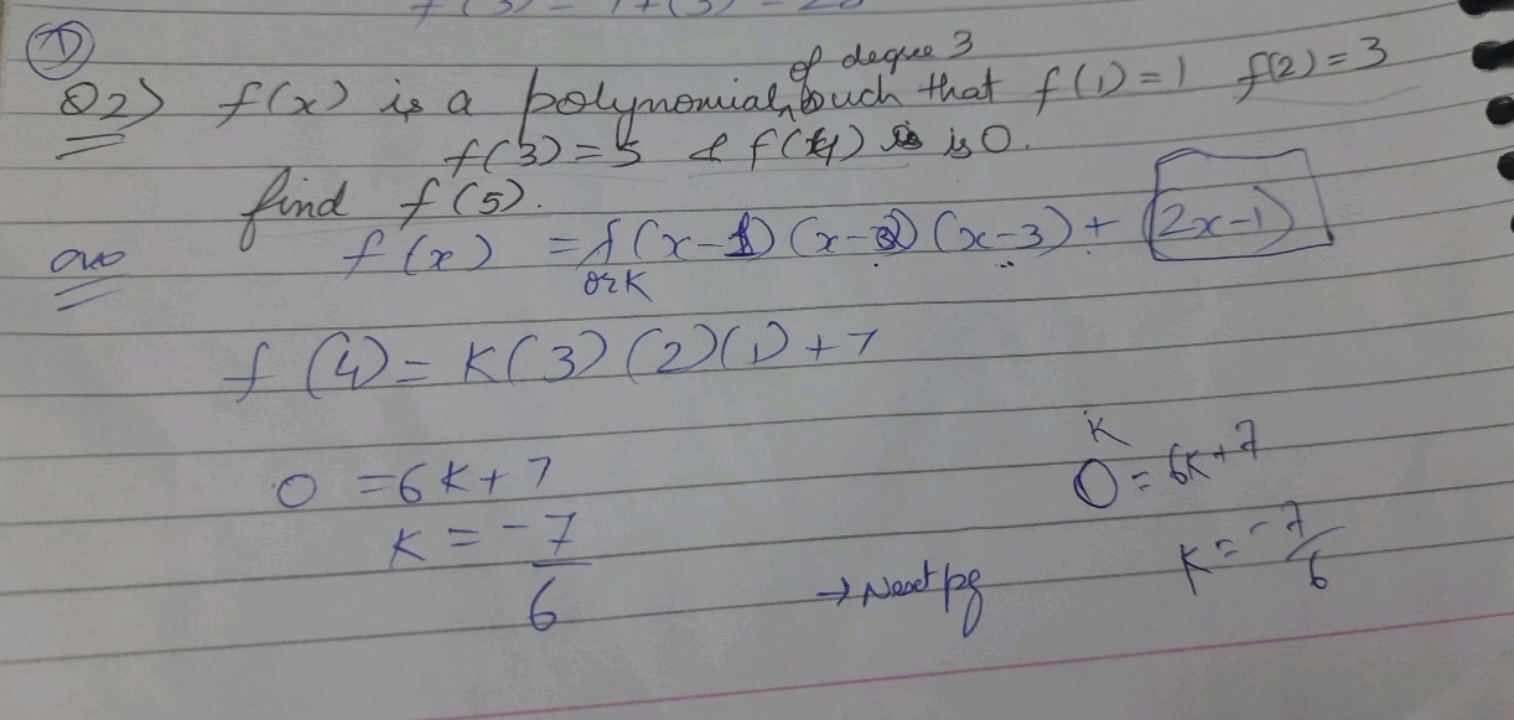 ①
Q2) f(x) is a polynomial, of degree 3 such that f(1)=1 f(2)=3
f(3)=5 & f(4) is 0.
find f(5).
ans f(x) = λ(x-1)(x-2)(x-3)+(2x-1)
or K
f(4)= K(3)(2)(1)+7
K
0 =6K+7 0=6K+7
K = -7/6 K=-7/6
→ Next pg